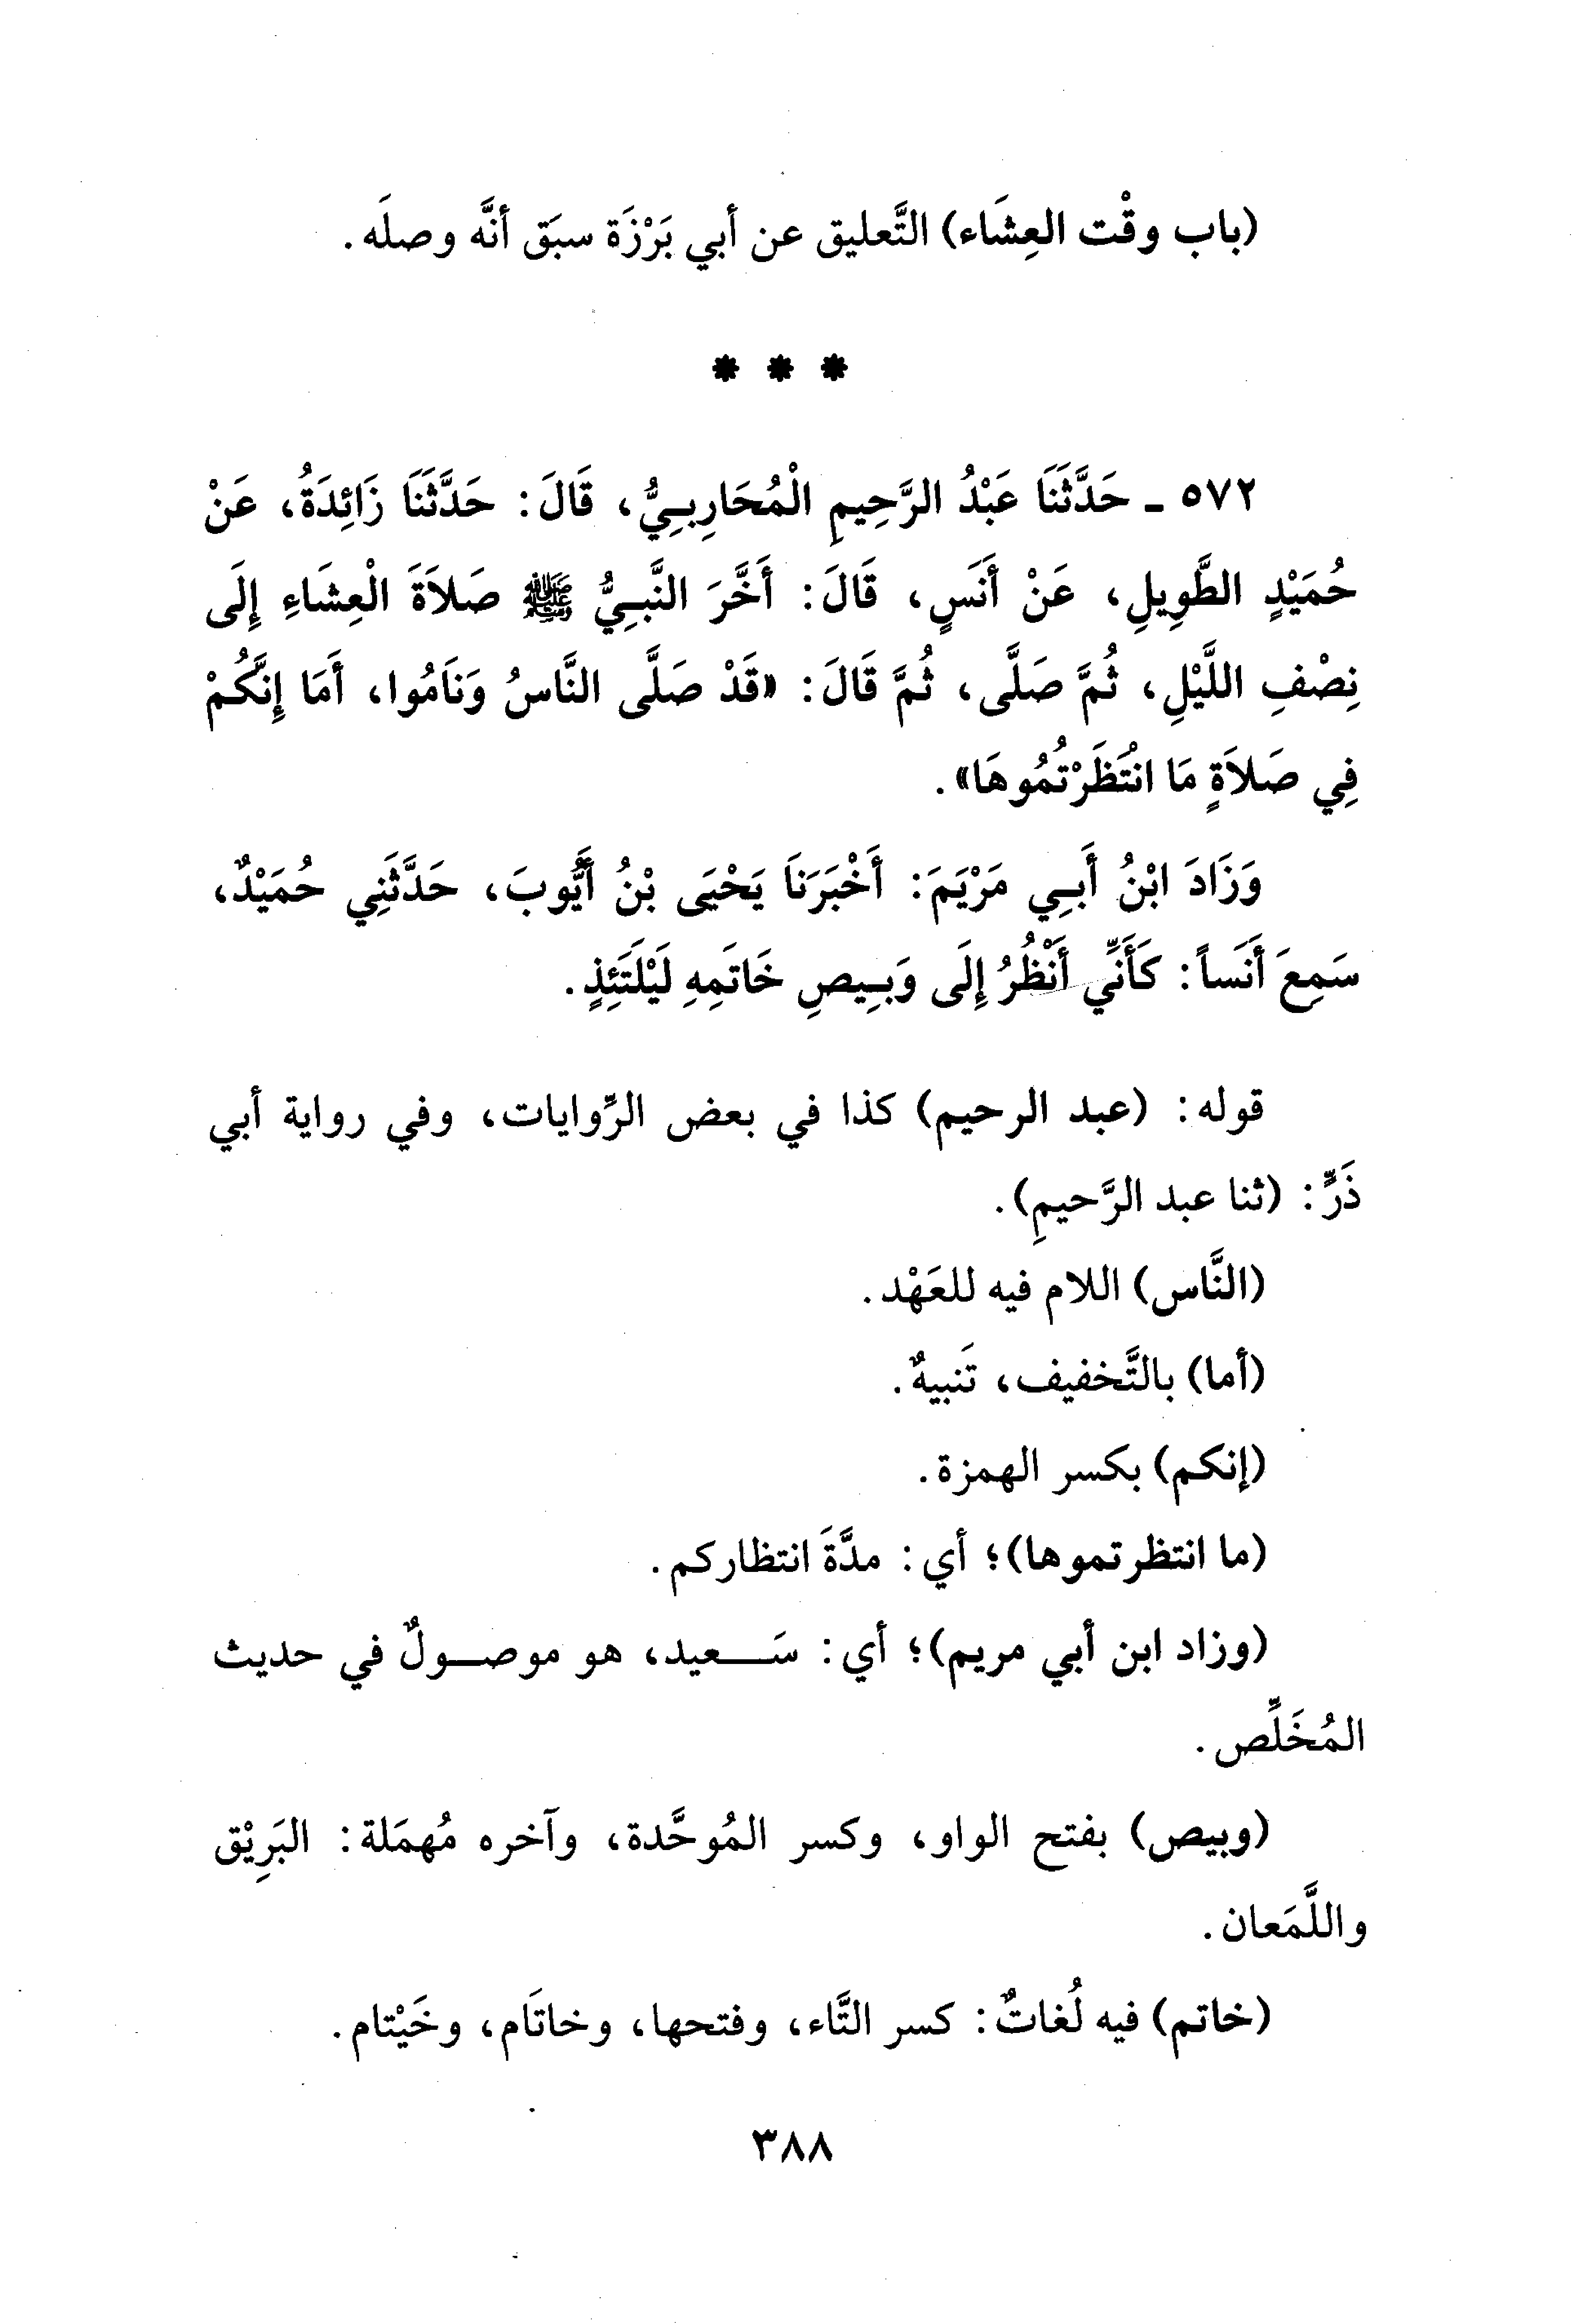 (باب وقْت العِشَاء) التَّعليق عن أبي بَرْزَة سبَق أنَّه وصلَه.
* * *
٥٧٢ - حَدَّثَنَا عَبْدُ الرَّحِيمِ الْمُحَارِبِيُّ، قَالَ: حَدَّثَنَا زَائِدَةُ، عَنْ
حُمَيْدٍ الطَّوِيلِ، عَنْ أَنَسٍ، قَالَ: أَخَّرَ النَّبِيُّ ﷺ صَلاَةَ الْعِشَاءِ إِلَى
نِصْفِ اللَّيْلِ، ثُمَّ صَلَّى، ثُمَّ قَالَ: «قَدْ صَلَّى النَّاسُ وَنَامُوا، أَمَا إِنَّكُمْ
فِي صَلاَةٍ مَا انْتَظَرْتُمُوهَا».
وَزَادَ ابْنُ أَبِي مَرْيَمَ: أَخْبَرَنَا يَحْيَى بْنُ أَيُّوبَ، حَدَّثَنِي حُمَيْدٌ،
سَمِعَ أَنَساً: كَأَنِّي أَنْظُرُ إِلَى وَبِيصِ خَاتَمِهِ لَيْلَتَئِذٍ.
قوله: (عبد الرحيم) كذا في بعض الرِّوايات، وفي رواية أبي
ذَرٍّ: (ثنا عبد الرَّحيمِ).
(النَّاس) اللام فيه للعَهْد.
(أما) بالتَّخفيف، تَنبيهٌ.
(إنكم) بكسر الهمزة.
(ما انتظرتموها)؛ أي: مدَّةَ انتظاركم.
(وزاد ابن أبي مريم)؛ أي: سَعيد، هو موصولٌ في حديث
المُخَلِّص.
(وبيص) بفتح الواو، وكسر المُوحَّدة، وآخره مُهمَلة: البَرِيْق
واللَّمَعان.
(خاتم) فيه لُغاتٌ: كسر التَّاء، وفتحها، وخاتَام، وخَيْتام.
٣٨٨